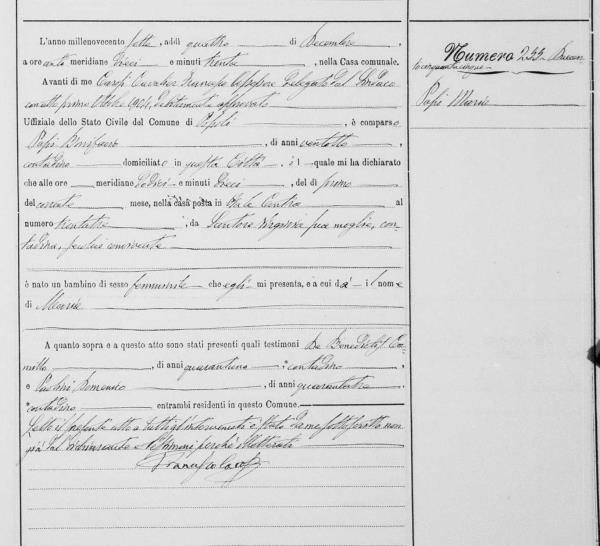 L'anno millenovecento sette, addì quattro di Decembre,
a ore anti meridiane dieci e minuti trenta, nella Casa comunale.
Avanti di me Carosi Cavalier Francesco Assessore Delegato dal Sindaco
con atto primo Ottobre 1904, debitamente approvato
Uffiziale dello Stato Civile del Comune di Popoli, è comparso
Papi Bonifacio, di anni ventotto,
contadino domiciliato in questa Città, il quale mi ha dichiarato
che alle ore meridiane dodici e minuti dieci, del dì primo
del corrente mese, nella casa posta in Viale Centra al
numero trentatre, da Santoro Virginia sua moglie, con-
tadina, seco lui convivente
è nato un bambino di sesso femminile che egli mi presenta, e a cui dà il nome
di Maria
A quanto sopra e a questo atto sono stati presenti quali testimoni De Benedictis Ca-
millo, di anni quarantuno, contadino,
e Domenico, di anni quarantatre,
contadino entrambi residenti in questo Comune.
Letto il presente atto a tutti gl'intervenuti è stato da me sottoscritto non
già dal dichiarante e testimoni perchè illetterati
Numero 255. Duecen-
tocinquantacinque
Papi Maria